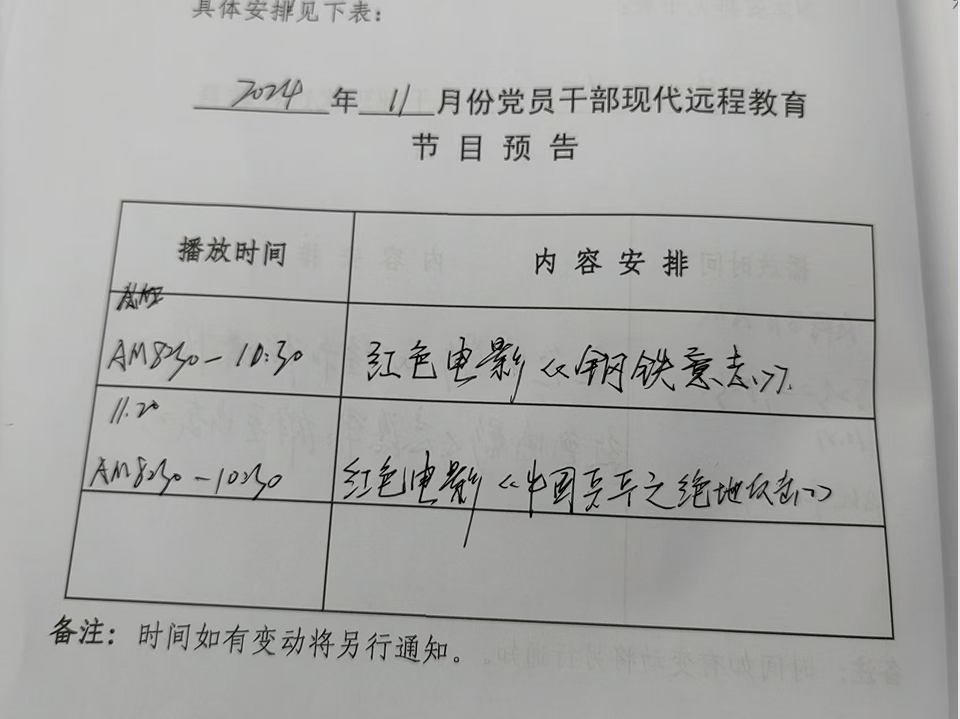 具体安排见下表：
2024年11月份党员干部现代远程教育
节目预告
播放时间 内容安排
AM8:30-10:30 红色电影《钢铁意志》.
11.20
AM8:30-10:30 红色电影《中国兵王之绝地反击》
备注：时间如有变动将另行通知。